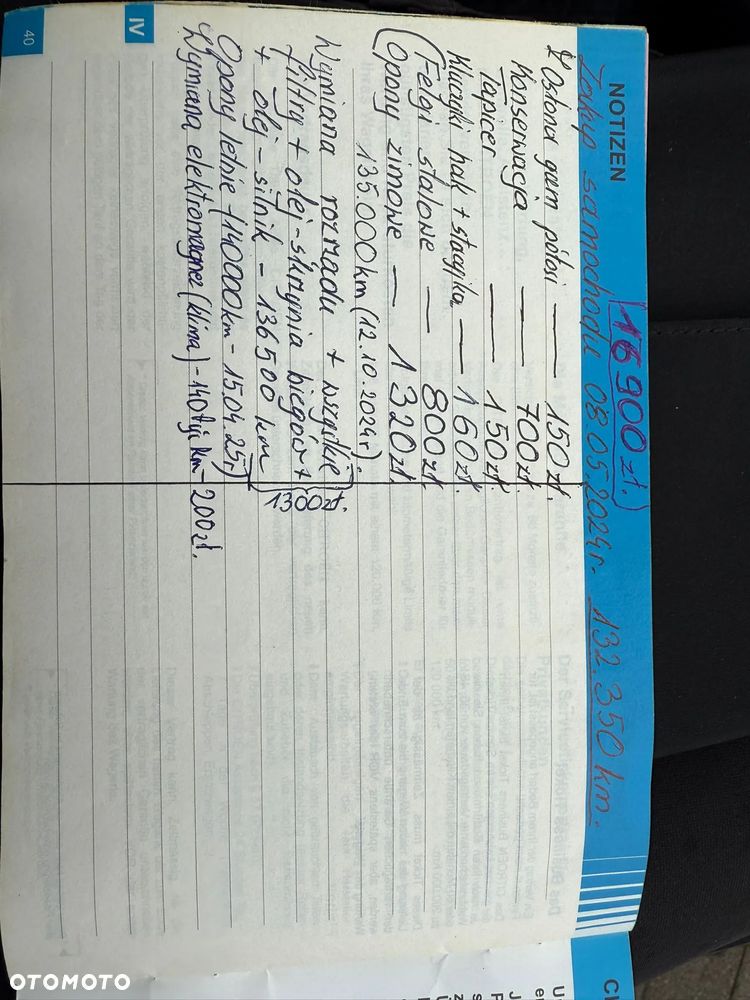 NOTIZEN
16 900 zł.
Zakup samochodu 08.05.2024r. 132.350 km.
Osłona gum półosi — 150 zł.
Konserwacja — 700 zł.
Tapicer — 150 zł.
Kluczyki hak + stacyjka — 160 zł.
Felgi stalowe — 800 zł.
Opony zimowe — 1320 zł.
135.000 km (12.10.2024r).
Wymiana rozrządu + wszystkie
filtry + olej - skrzynia biegów +
+ olej - silnik - 136500 km
1300 zł.
Opony letnie - (140000km - 15.04.25r)
Wymiana elektromagnez (klima) - 140 tyś km - 200 zł.
IV
40
OTOMOTO